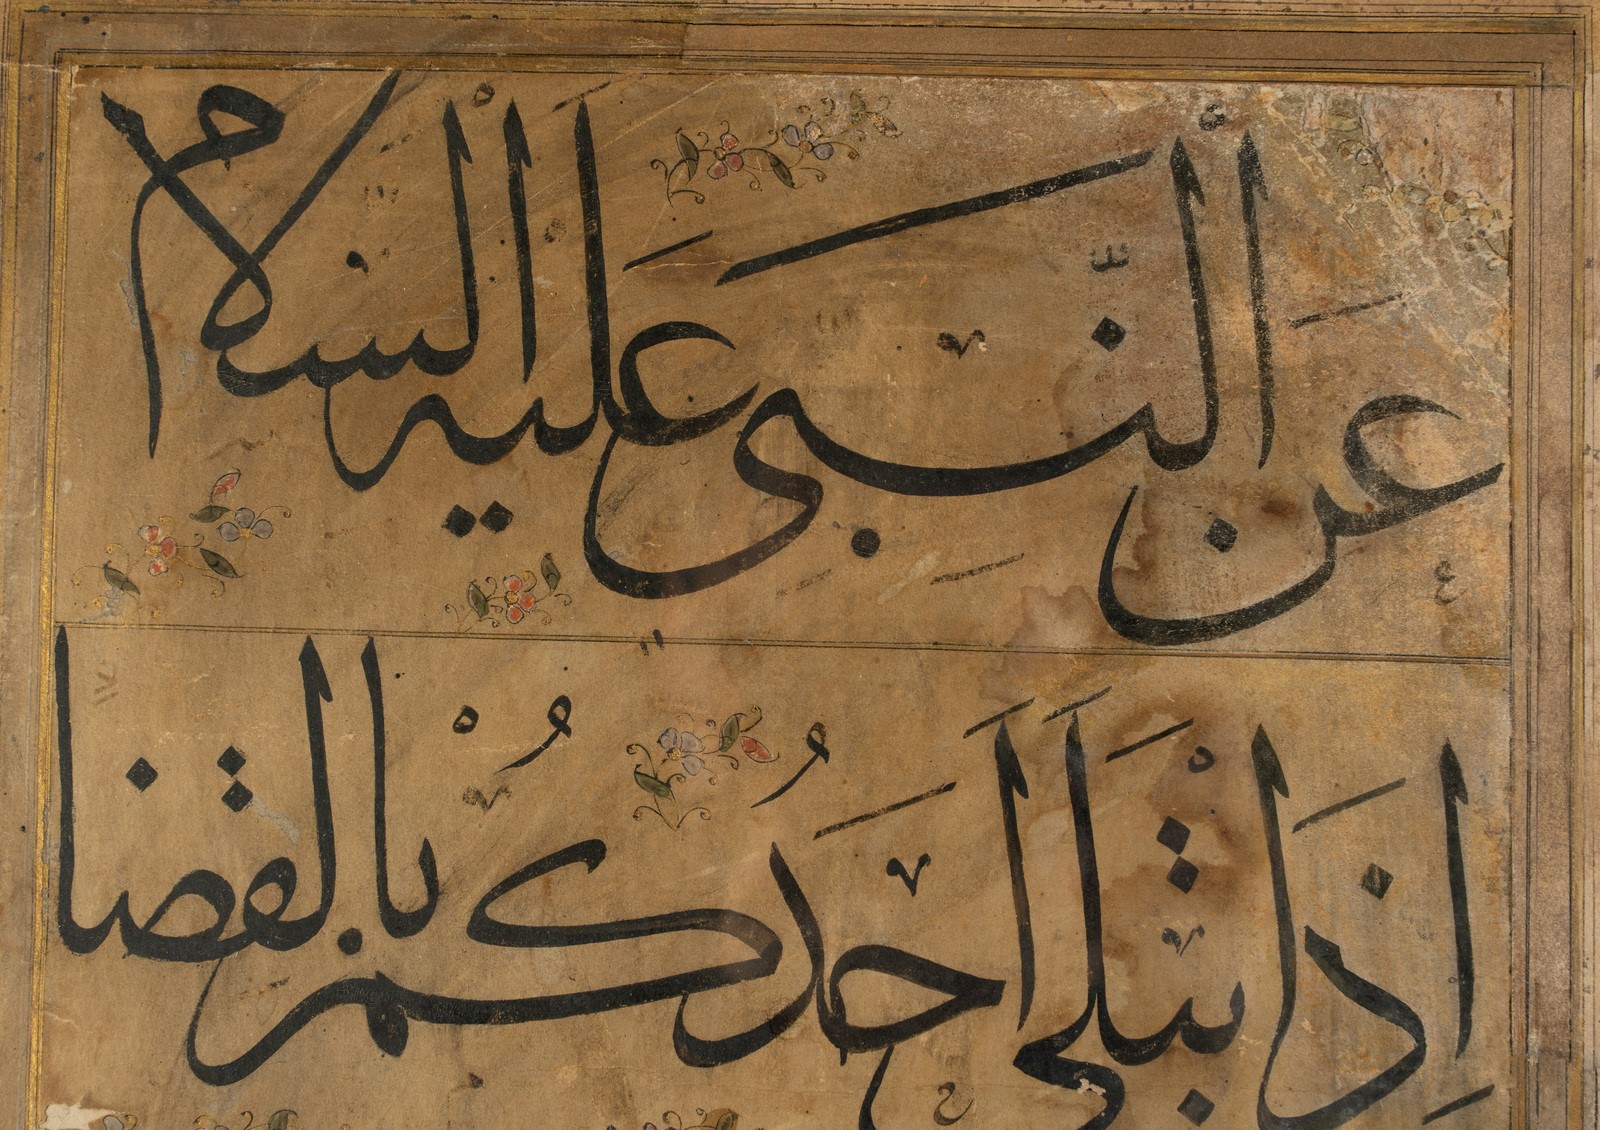 عَن النَّبِي عَلَيه السلام
اِذَا ابْتَلَى اَحَدُكُمْ بالقضا